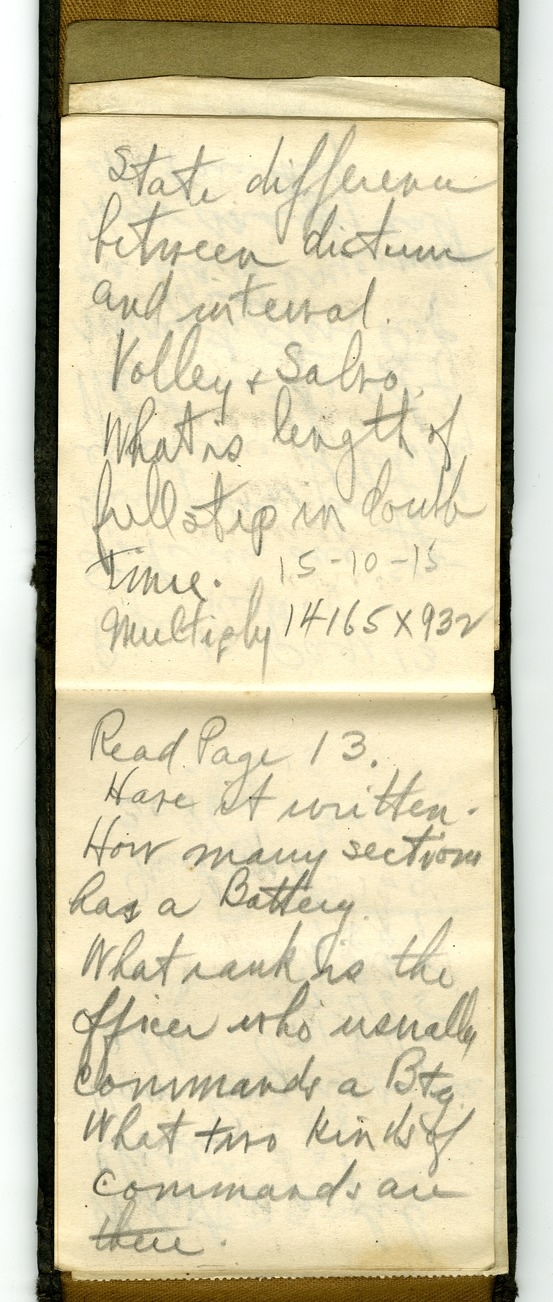 State difference
between distance
and interval.
Volley & Salvo.
What is length of
full step in double
time. 15-10-15
Multiply 14165 X 932
Read Page 13.
Have it written.
How many sections
has a Battery.
What rank is the
officer who usually
commands a Bty
What two kinds of
commands are
there.